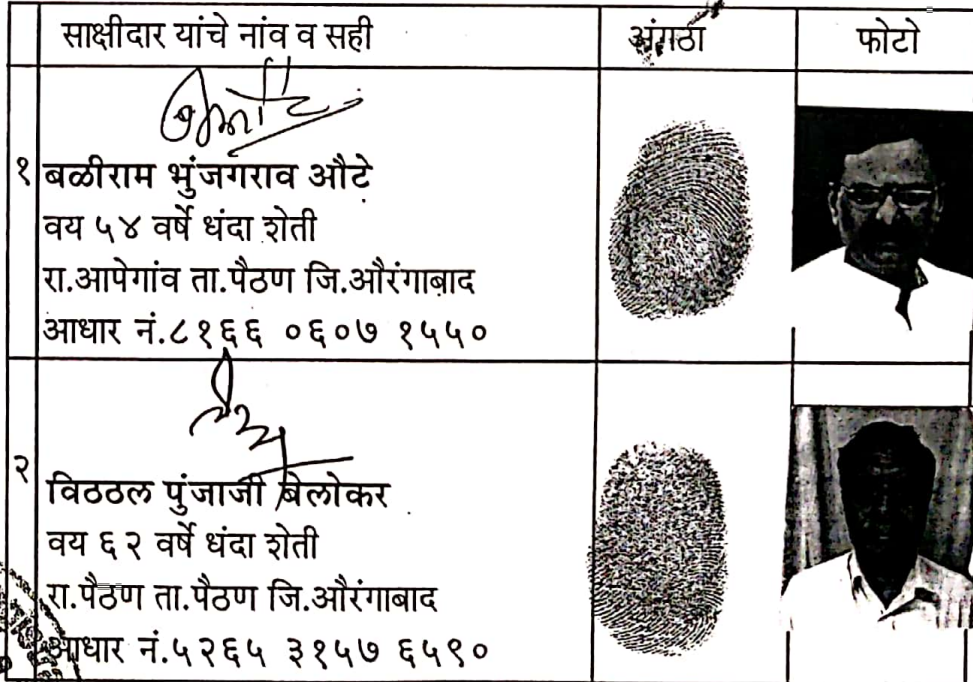 साक्षीदार यांचे नांव व सही अंगठा फोटो
१ बळीराम भुंजगराव औटे
वय ५४ वर्षे धंदा शेती
रा.आपेगांव ता.पैठण जि.औरंगाबाद
आधार नं.८१६६ ०६०७ १५५०
२ विठठल पुंजाजी बेलोकर
वय ६२ वर्षे धंदा शेती
रा.पैठण ता.पैठण जि.औरंगाबाद
आधार नं.५२६५ ३१५७ ६५९०